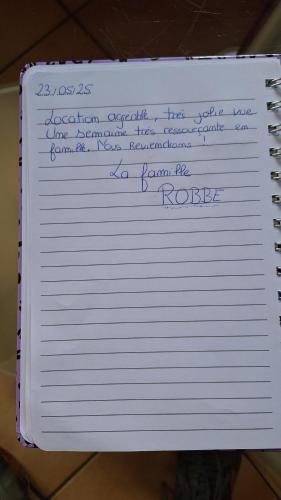 23/05/25
Location agréable, très jolie vue
Une semaine très ressourçante en
famille. Nous Reviendrons !
La famille
ROBBE